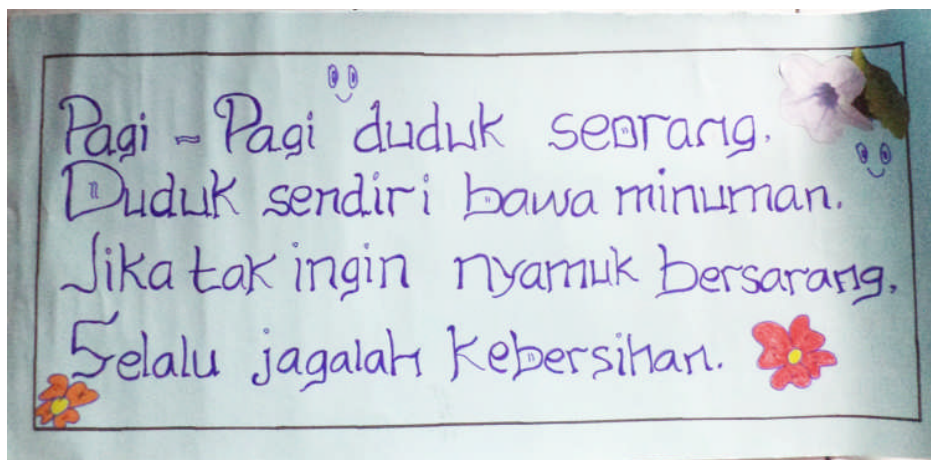 Pagi - Pagi duduk seorang.
Duduk sendiri bawa minuman.
Jika tak ingin nyamuk bersarang,
Selalu jagalah kebersihan.